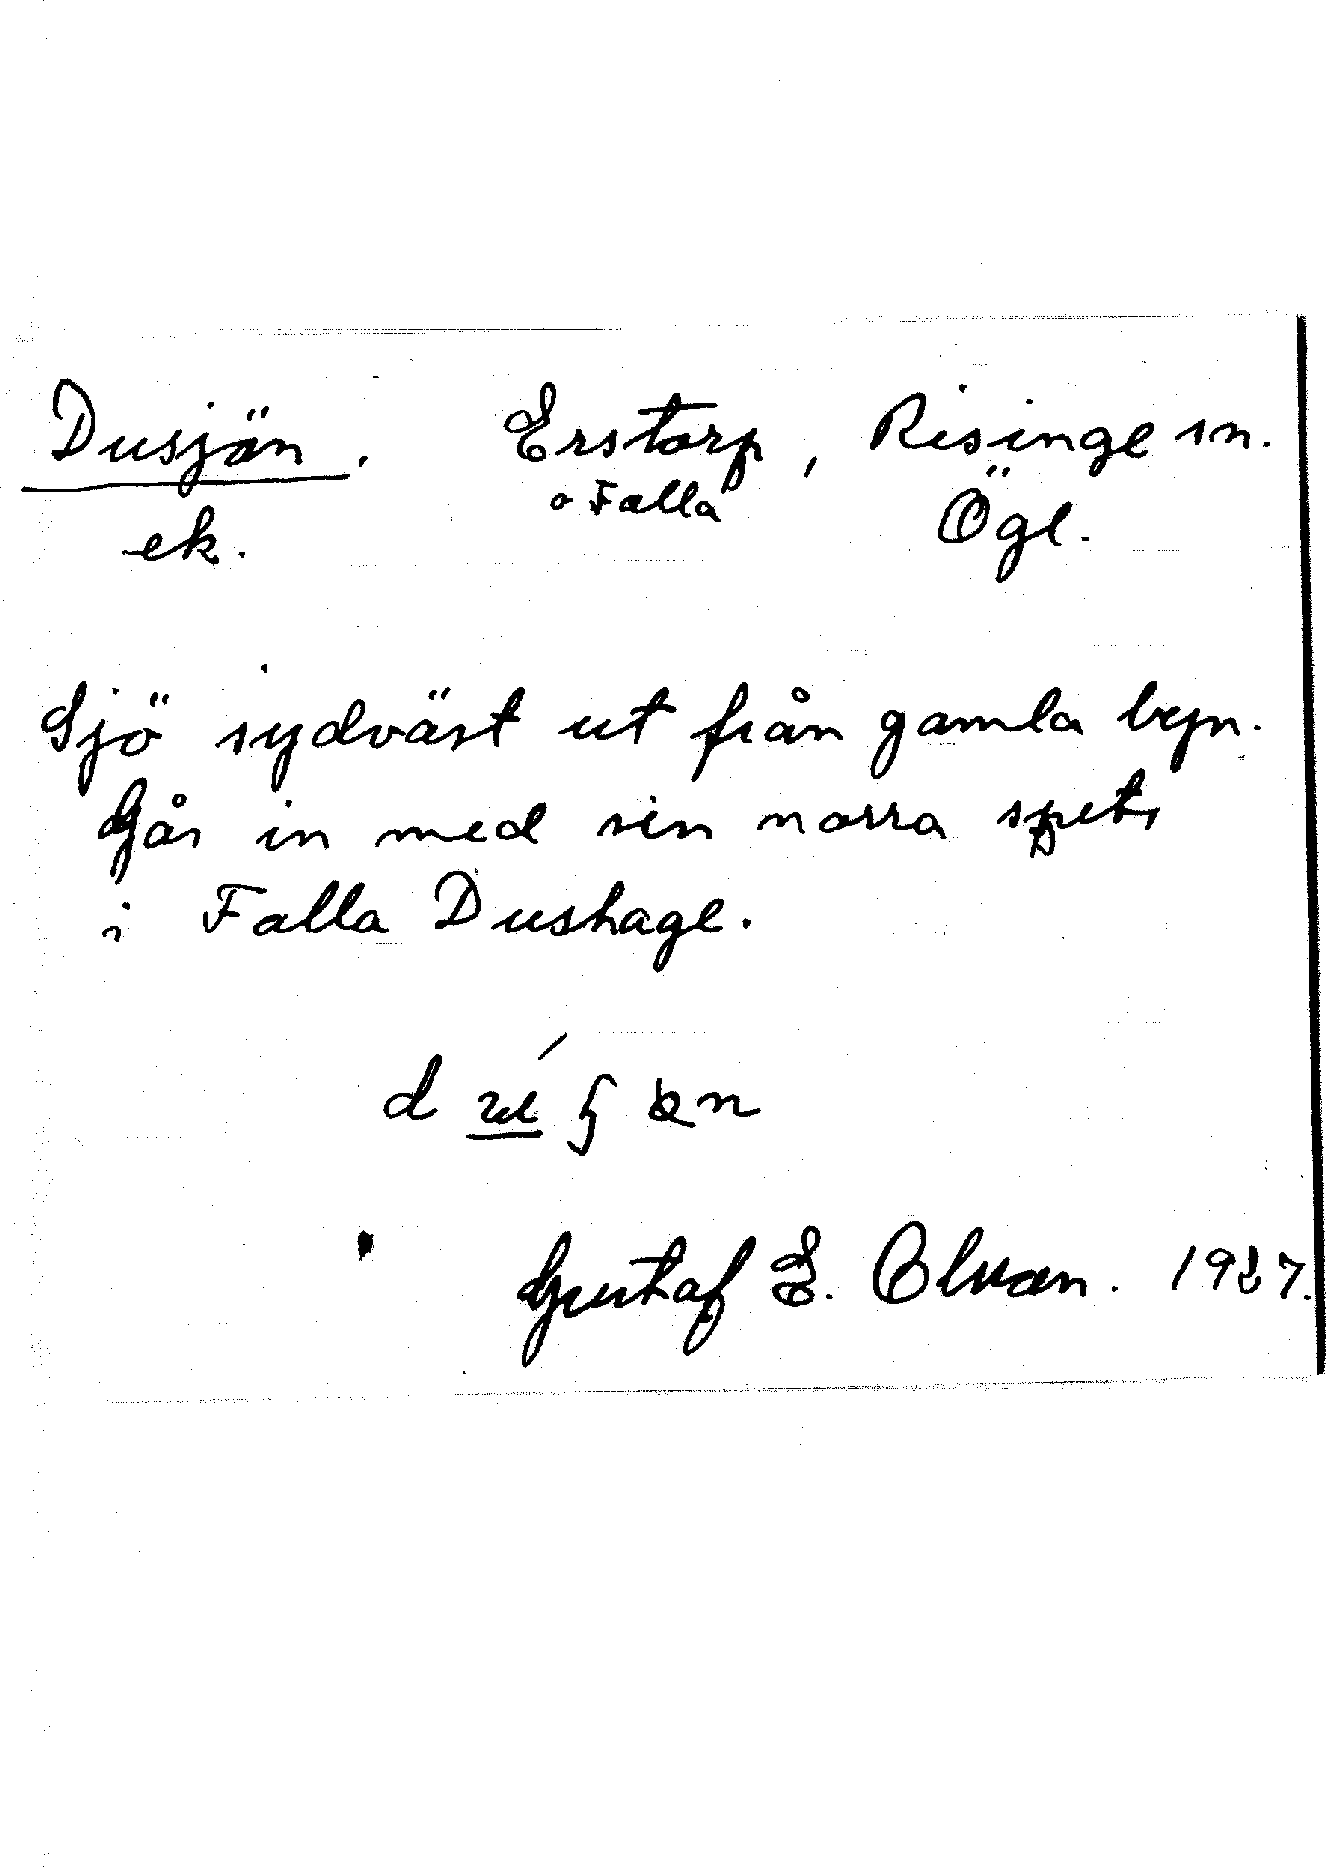 Dusjön. Erstorp, Risinge sn.
o Falla Ögl.
ek.
Sjö sydväst ut från gamla byn.
Går in med sin norra spets
i Falla Dushage.
Gustaf E. Olsson. 1937.